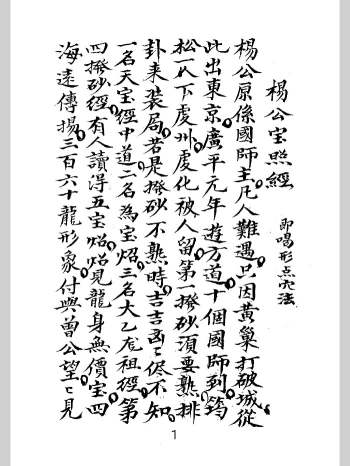 楊公宝照經
即喝形点穴法
楊公原係國師主凡人難遇只因黃巢打破城從
此出東京廣平元年遊万道十個國師到筠
松一人下虔州虔化被人留第一撥砂須要熟排
卦来裝局若是撥砂不熟時吉吉凶〻侭不知
一名天宝經中道二名為宝炤三名大乙尨祖經第
四撥砂經有人讀得五宝炤炤見龍身無價宝四
海遠傳揚三百六十龍形象付與曾公望〻見
1